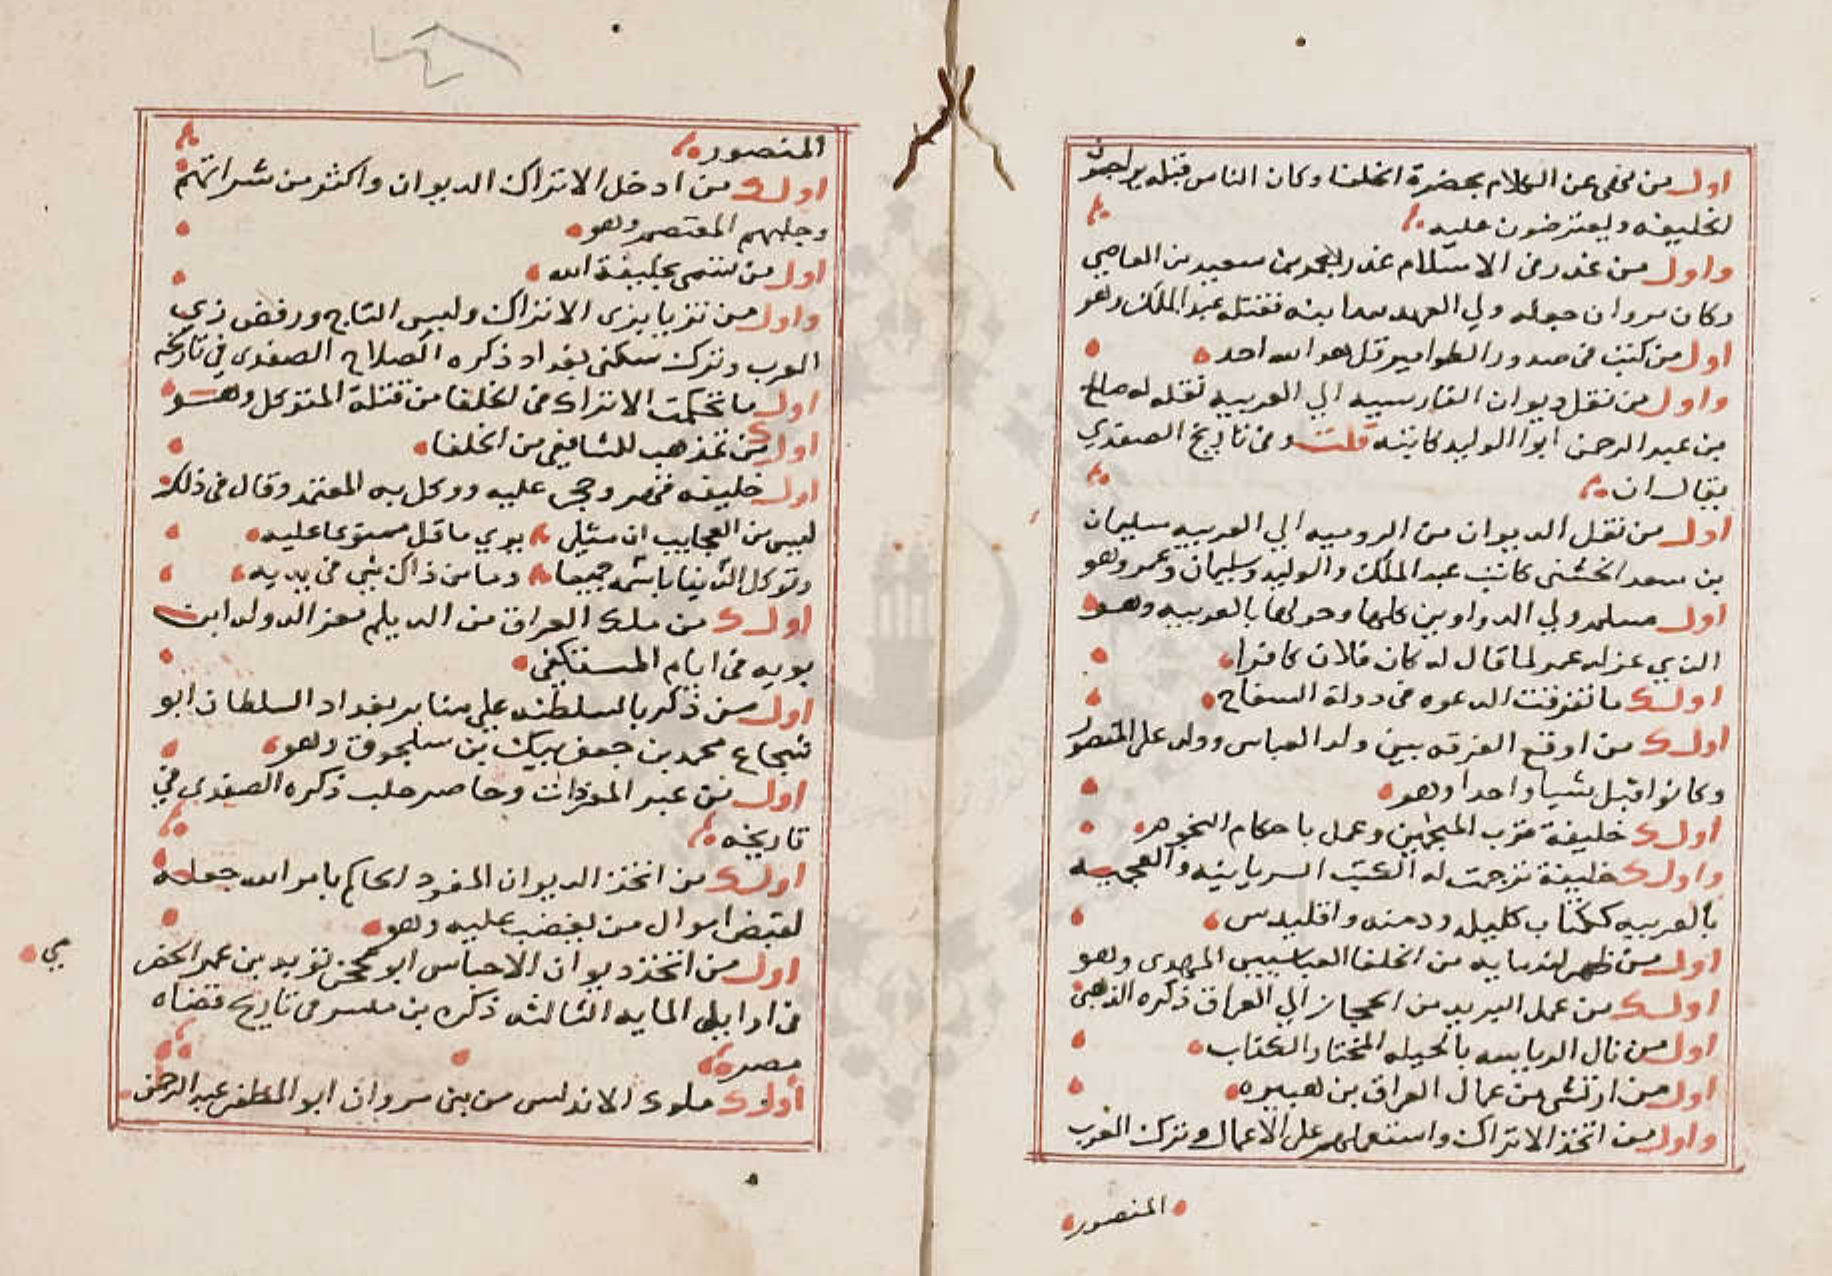 اول من نهى عن الكلام بحضرة الخلفا وكان الناس قبله يراجعون
الخليفه ويعترضون عليه
واول من غدر في الاسلام غدر بعمرو بن سعيد بن العاصي
وكان مروان جعله ولي العهد بعد ابنه فقتله عبد الملك وهو
اول من كتب في صدور الطوامير قل هو الله احد
واول من نقل ديوان الفارسيه الي العربيه نقله له صالح
بن عبد الرحمن ابوا الوليد كاتبه قلت وفي تاريخ الصفدي
يقال ان
اول من نقل الديوان من الروميه الي العربيه سليمان
بن سعد الخشني كاتب عبد الملك والوليد وسليمان وعمر وهو
اول مسلم ولي الدواوين كلها وحولها بالعربيه وهو
الذي عزله عمر لما قال له كان فلان كافرا
اول ما تفرقت الدعوه في دولة السفاح
اول من اوقع الفرقه بين ولد العباس وولد علي المنصور
وكانوا قبل شيا واحدا وهو
اول خليفة قرب المنجمين وعمل باحكام النجوم
واول خليفة ترجمت له الكتب السريانيه والعجميه
بالعربيه ككتاب كليله ودمنه واقليدس
اول من ظهر لندمايه من الخلفا العباسيين المهدي وهو
اول من عمل البريد من الحجاز الي العراق ذكره الذهبي
اول من نال الرياسه بالحيله المختار الكذاب
اول من ارتشي من عمال العراق بن هبيره
واول من اتخذ الاتراك واستعملهم علي الاعمال وترك العرب
المنصور
المنصور
اول من ادخل الاتراك الديوان واكثر من شرائهم
وجلبهم المعتصم وهو
اول من تسمى بخليفة الله
واول من تزيا بزي الاتراك ولبس التاج ورفض زي
العرب وترك سكني بغداد ذكره الصلاح الصفدي في تاريخه
اول ما تحكمت الاتراك في الخلفا من قتلة المتوكل وهو
اول من تمذهب للشافعي من الخلفا
اول خليفه قهر وحجر عليه ووكل به المعتمد وقال في ذلك
اليس من العجايب ان مثلي يري ما قل ممتنوعا عليه
وتوكل الدنيا باسمه جميعا وما من ذاك شي في يديه
اول من ملك العراق من الديلم معز الدوله ابن
بويه في ايام المستكفي
اول من ذكر بالسلطنه علي منابر بغداد السلطان ابو
شجاع محمد بن جعفر بيك بن سلجوق وهو
اول من عبر الفرات وحاصر حلب ذكره الصفدي في
تاريخه
اول من اتخذ الديوان المفرد الحاكم بامر الله جعله
لقبض اموال من يغضب عليه وهو
اول من اتخذ ديوان الاحباس ابو محجن توبه بن عمر الحضر
مي
في اوايل المايه الثالثه ذكره بن ميسر في تاريخ قضاه
مصر
اول ملوك الاندلس من بني مروان ابو المظفر عبد الرحمن